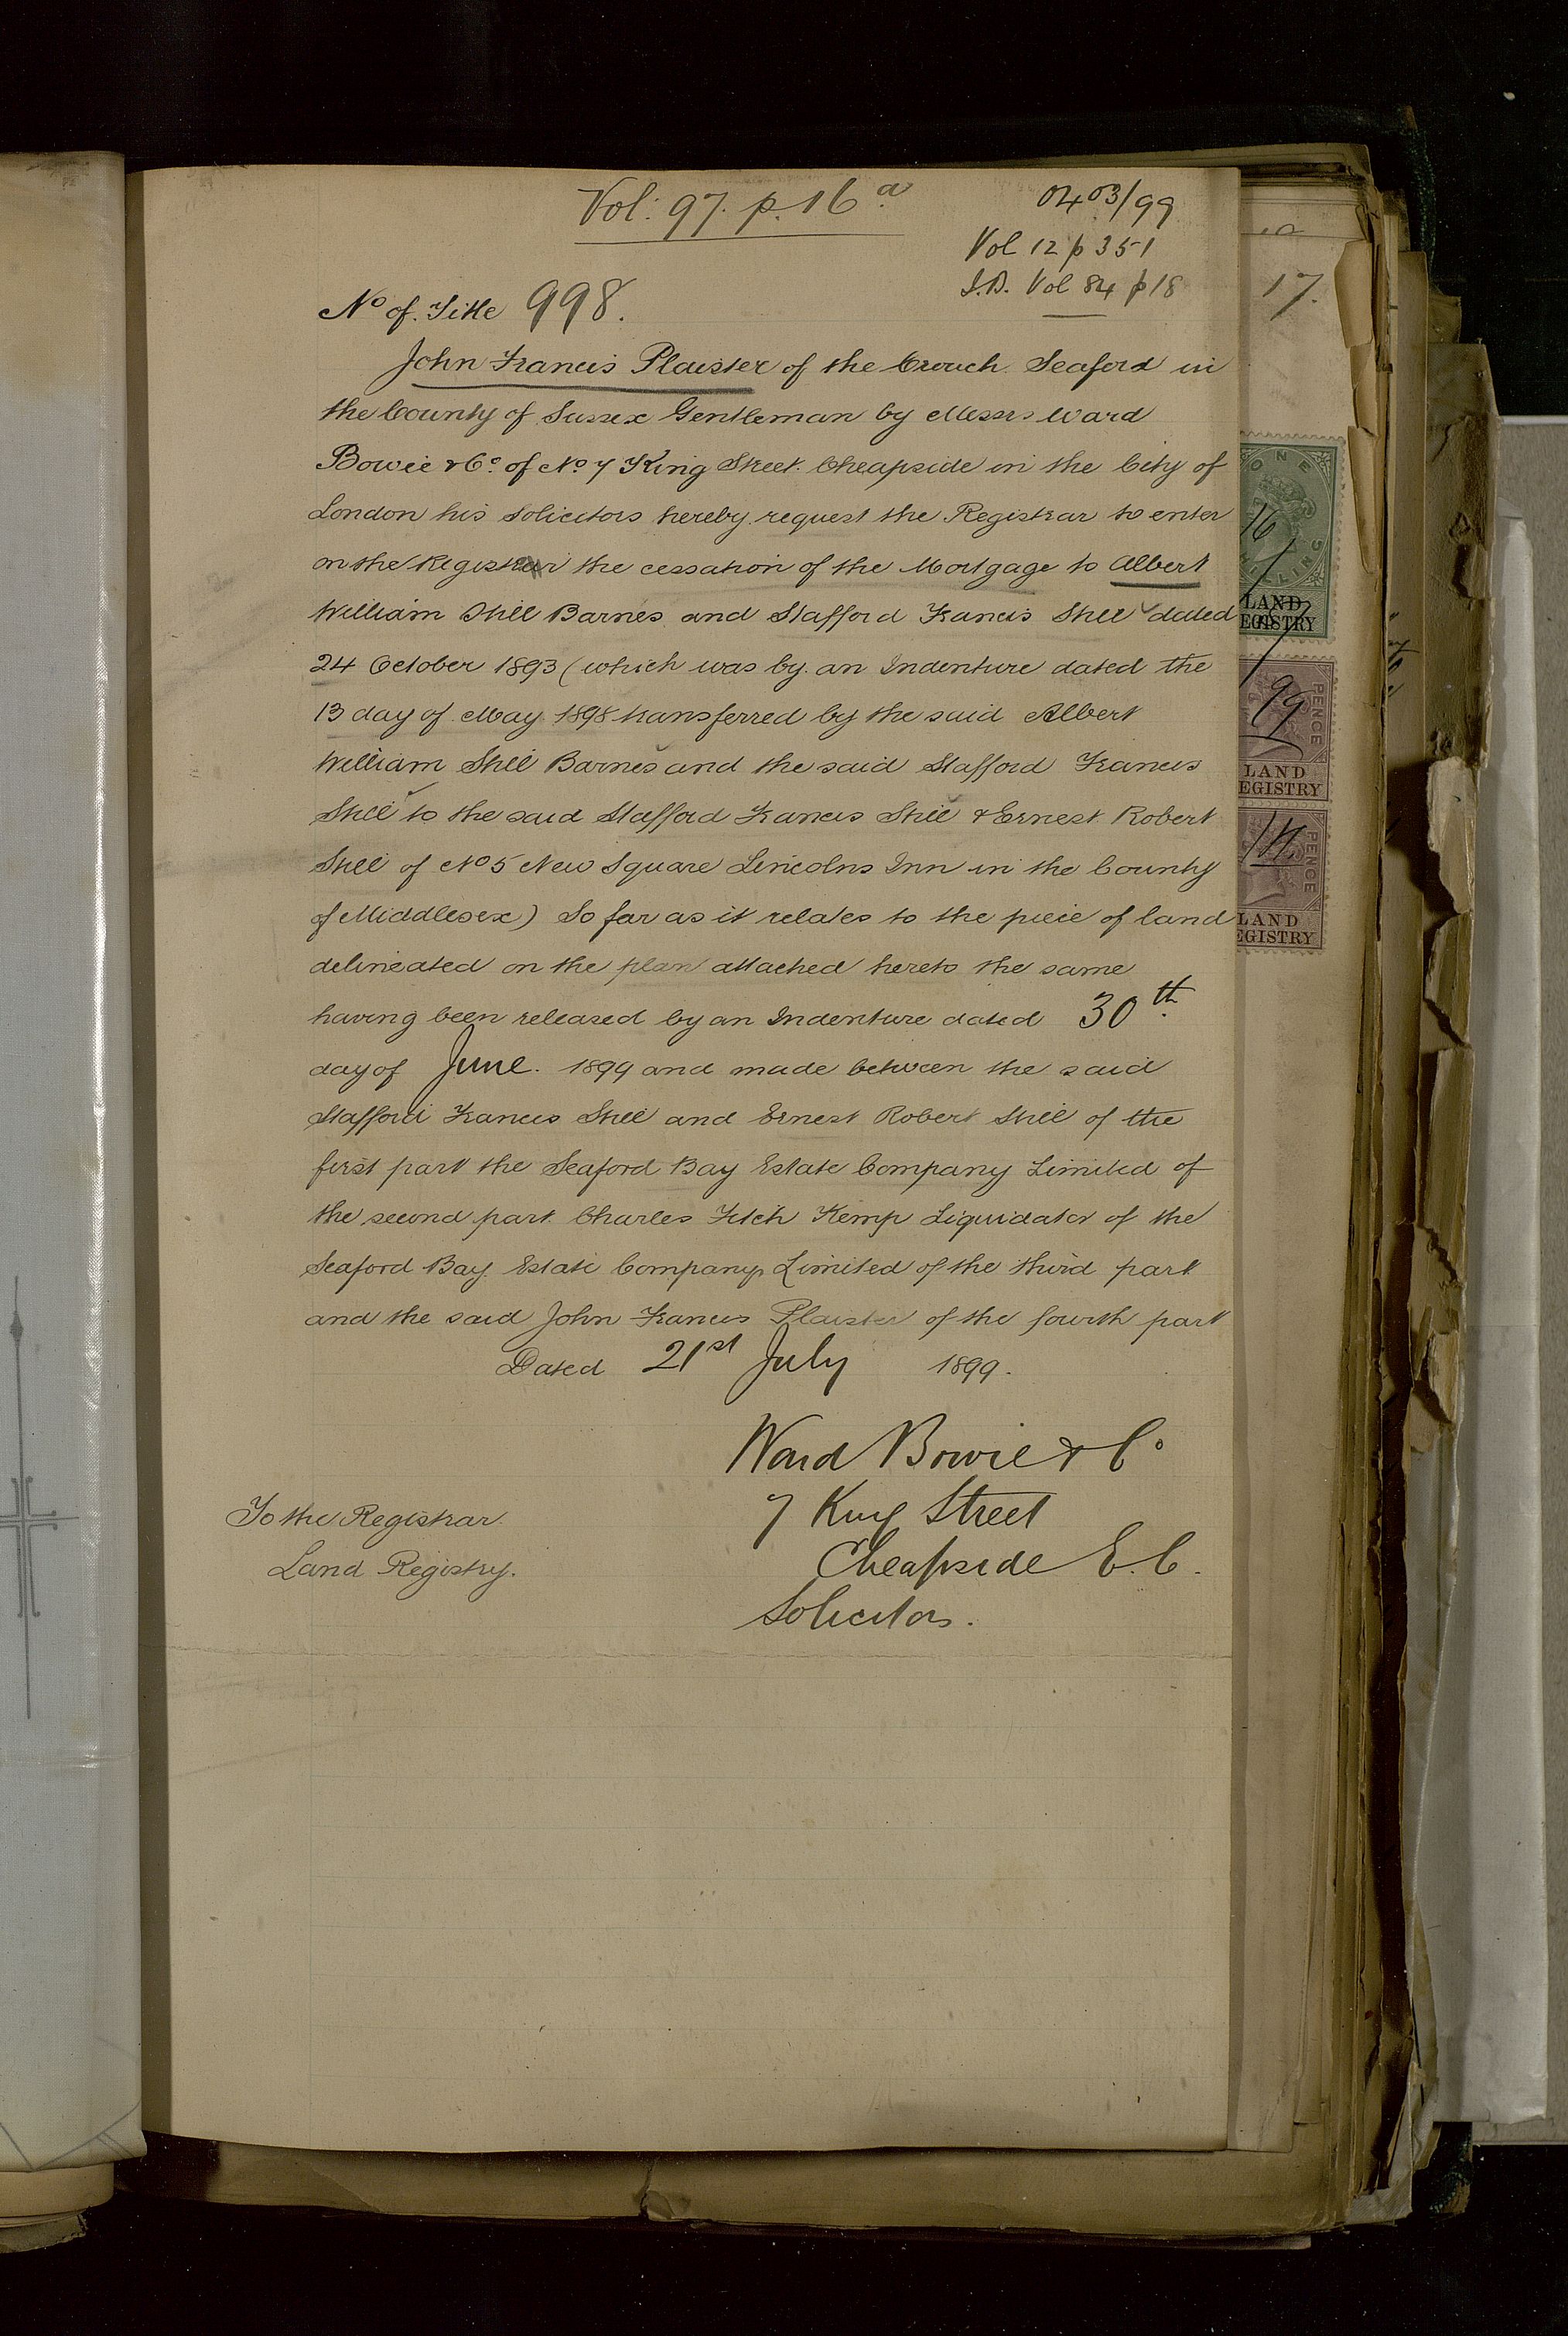 Vol: 97. p. 16 a
0403/99
Vol 12 p 351
I.D. Vol 84 p 18
No of Title 998.
John Francis Plaister of the Crouch Seaford in
the County of Sussex Gentleman by Messrs Ward
Bowie & Co. of No. 7 King Street Cheapside in the City of
London his solicitors hereby request the Registrar to enter
on the Register the cessation of the Mortgage to Albert
William Still Barnes and Stafford Francis Still dated
24 October 1893 (which was by an Indenture dated the
13 day of May 1898 transferred by the said Albert
William Still Barnes and the said Stafford Francis
Still to the said Stafford Francis Still & Ernest Robert
Still of No 5 New Square Lincolns Inn in the County
of Middlesex) So far as it relates to the piece of land
delineated on the plan attached hereto the same
having been released by an Indenture dated 30th
day of June 1899 and made between the said
Stafford Francis Still and Ernest Robert Still of the
first part the Seaford Bay Estate Company Limited of
the second part Charles Fitch Kemp Liquidator of the
Seaford Bay Estate Company Limited of the third part
and the said John Francis Plaister of the fourth part
Dated 21st July 1899.
Ward Bowie & Co
7 King Street
Cheapside E.C.
Solicitors.
To the Registrar
Land Registry.
17.
ONE
SHILLING
16
LAND
REGISTRY
PENCE
99
LAND
REGISTRY
PENCE
LAND
REGISTRY